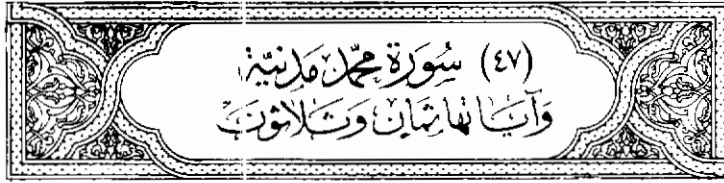 (٤٧) سُورَة محمّد مَدنيّة
وَآيَاتهَا ثمَان وَثَلاثونَ